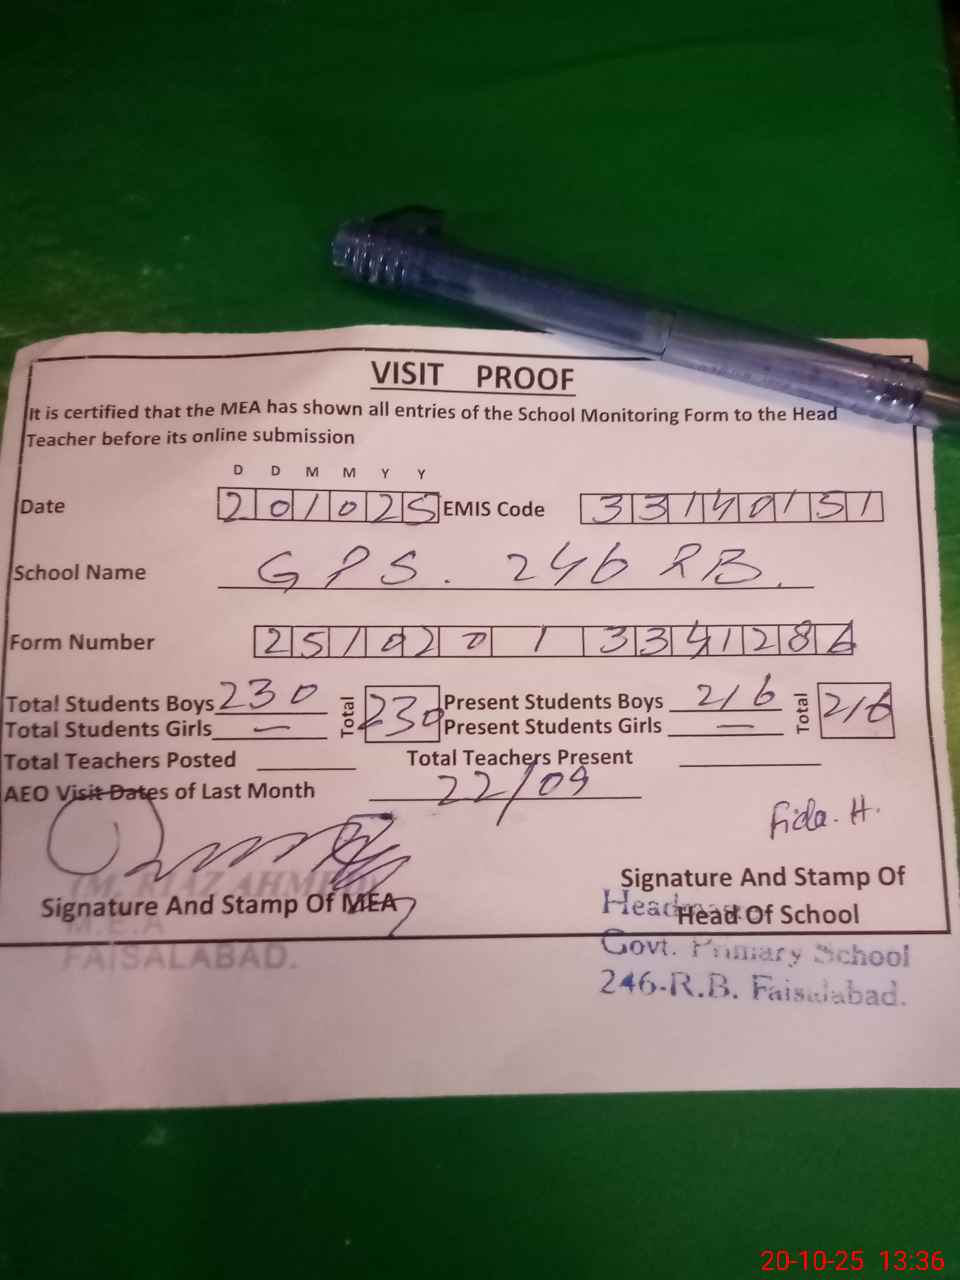 VISIT PROOF
It is certified that the MEA has shown all entries of the School Monitoring Form to the Head
Teacher before its online submission
D D M M Y Y
Date 201025 EMIS Code 33140151
School Name GPS. 246 RB.
Form Number 25102013341286
Total Students Boys 230 Total 230 Present Students Boys 216 Total 216
Total Students Girls — Present Students Girls —
Total Teachers Posted Total Teachers Present
AEO Visit Dates of Last Month 22/09
Fida. H.
Signature And Stamp Of MEA Signature And Stamp Of
Head Of School
(M. RIAZ AHMED)
M.E.A
FAISALABAD.
Govt. Primary School
246-R.B. Faisalabad.
20-10-25 13:36